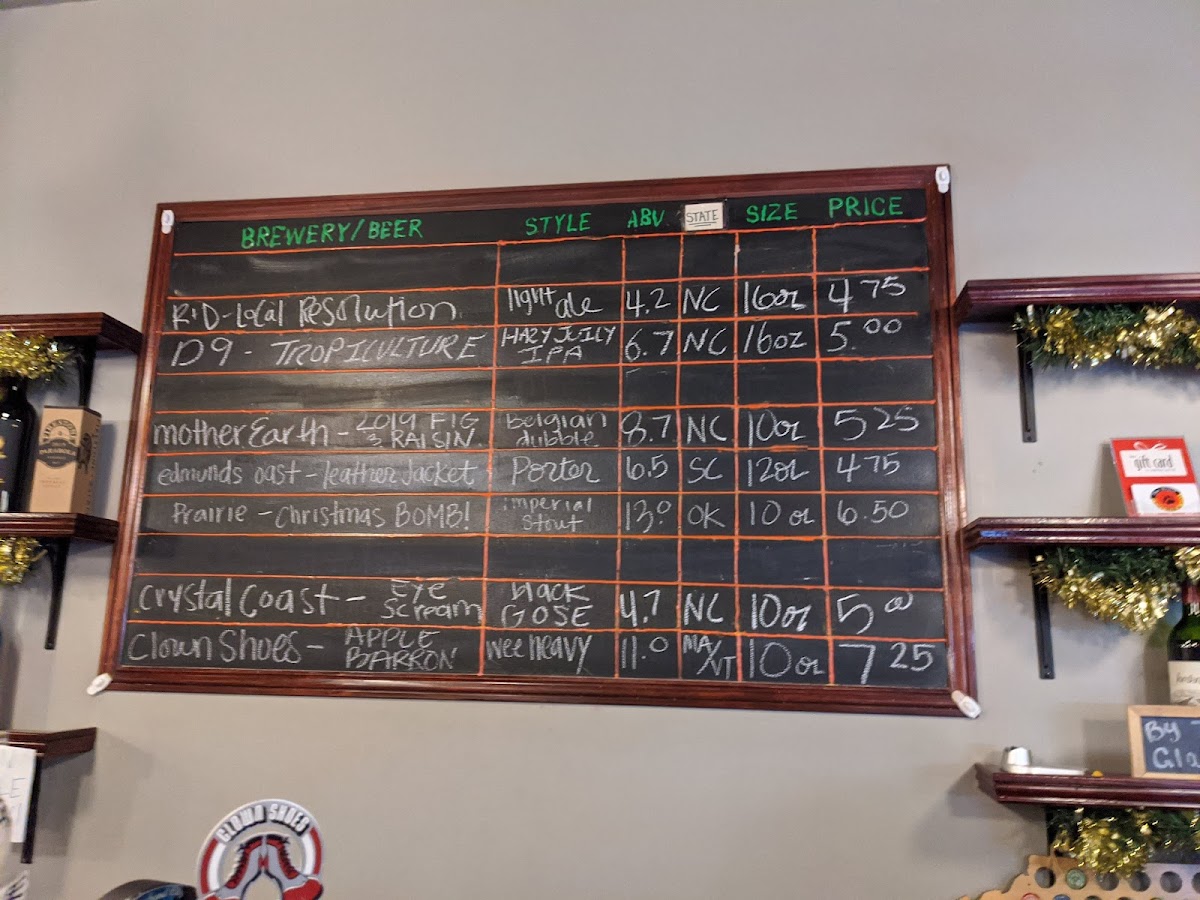 BREWERY/BEER STYLE ABV STATE SIZE PRICE
R&D-Local Resolution light ale 4.2 NC 16oz 4 75
D9 - TROPICULTURE HAZY JUICY IPA 6.7 NC 16oz 5.00
motherEarth - 2019 FIG & RAISIN Belgian dubble 8.7 NC 10oz 5 25
edmunds oast - leather jacket Porter 6.5 SC 12oz 4 75
Prairie - Christmas BOMB! imperial Stout 13.0 OK 10 oz 6.50
Crystal Coast - Eye Scream Hack GOSE 4.7 NC 10oz 5 00
Clown Shoes - APPLE BARRON wee heavy 11.0 MA/VT 10 oz 7 25
gift card
By
Gla
CLOWN SHOES